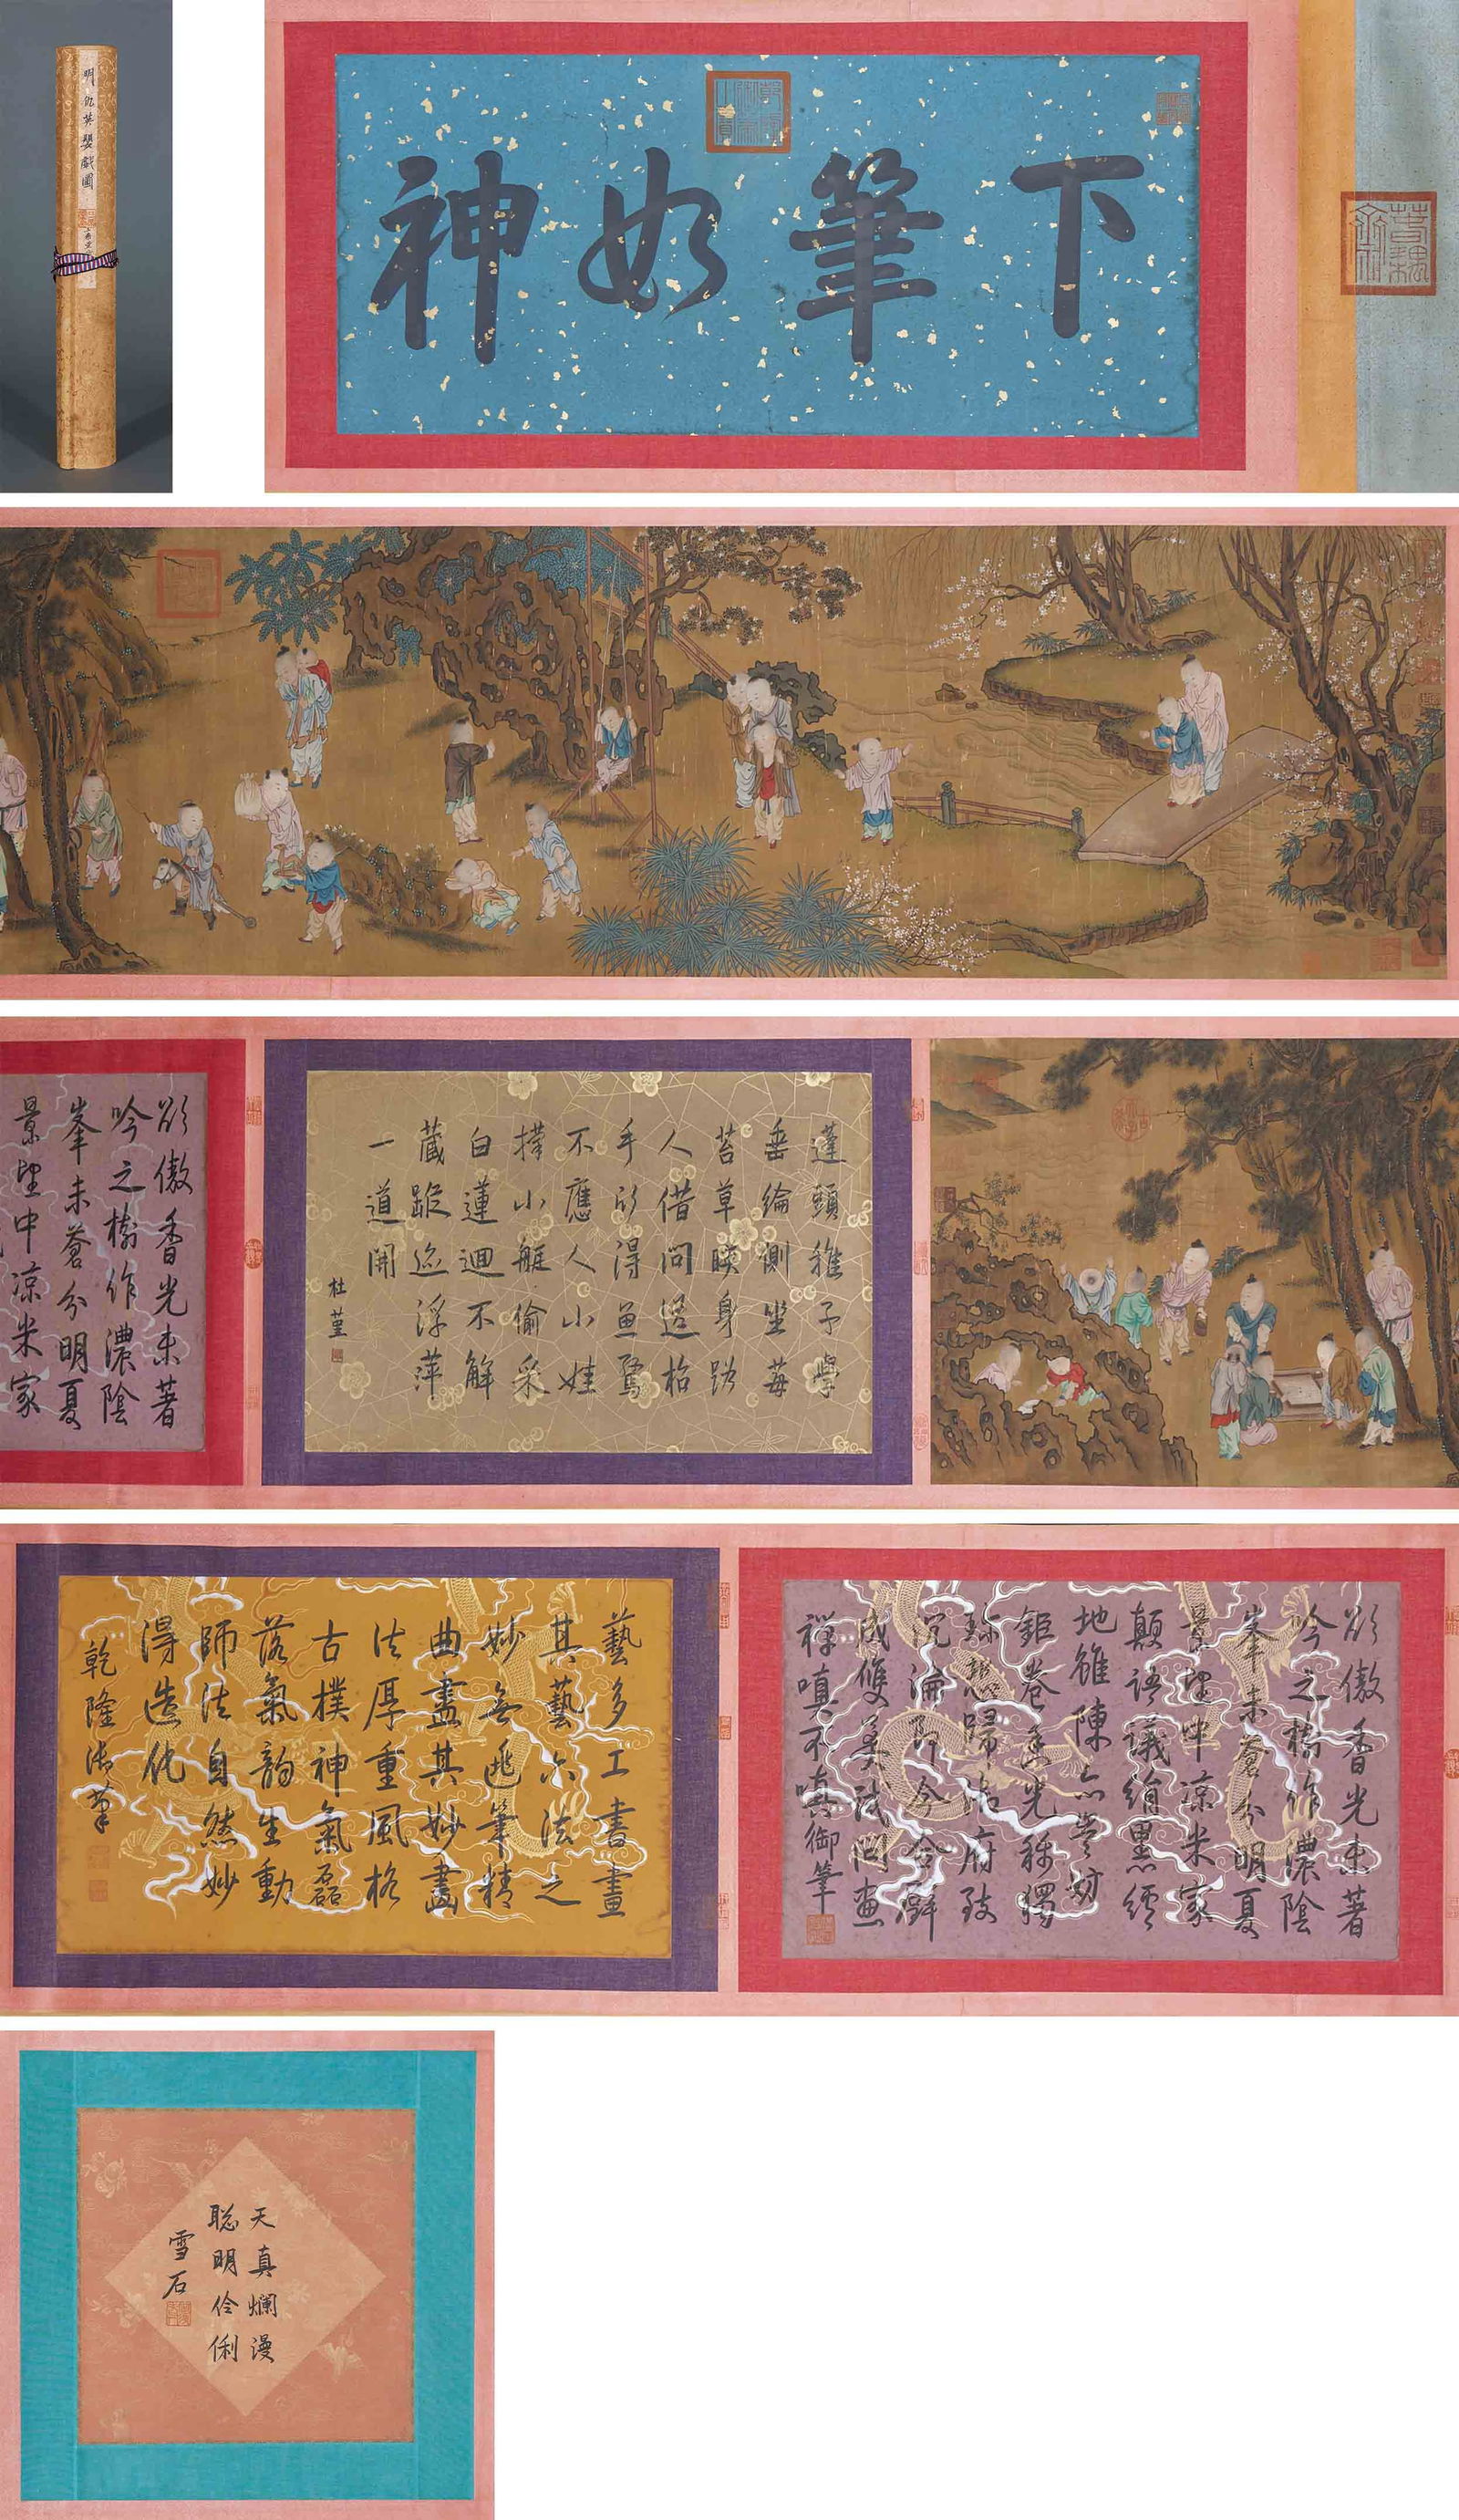 明仇英嬰戲圖
下筆如神
蓬頭稚子學
垂綸側坐莓
苔草映身路
人借問遥招
手欲得魚驚
不應人小娃
撐小艇偷采
白蓮迴不解
藏蹤迹浮萍
一道開
杜堇
欲傲香光未著
吟之樹作濃陰
峯未蒼分明夏
景望中凉米家
欲傲香光未著
吟之樹作濃陰
峯未蒼分明夏
景望中凉米家
顛語議絹黑縹
地雖陳六
鉅卷香光稱獨
歸府致
沉淪即今合辟
成雙美試問畫
禪嗔不嗔御筆
藝多工書畫
其藝六法之
妙無逃筆精
曲盡其妙畫
法厚重風格
古樸神氣磊
落氣韵生動
師法自然妙
得造化
乾隆御筆
天真爛漫
聪明伶俐
雪石